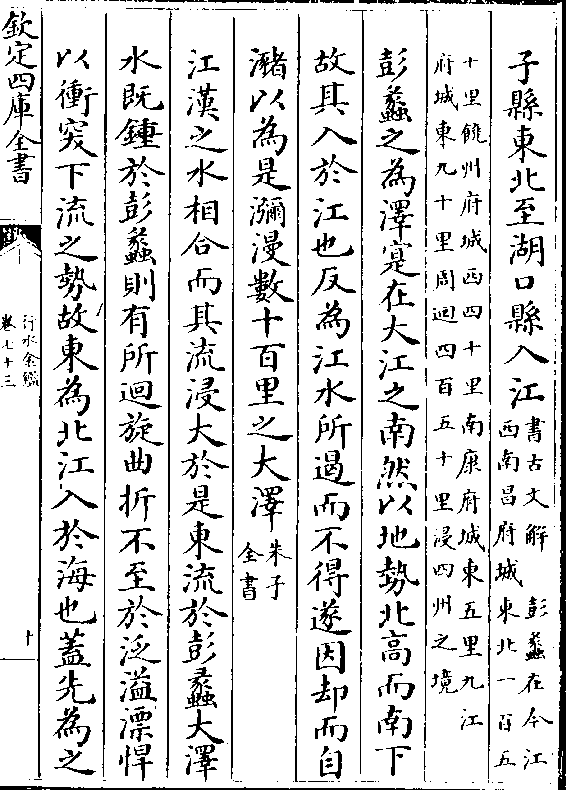 子縣東北至湖口縣入江書古文解　彭蠡在今江
西南昌府城東北一百五
十里饒州府城西四十里南康府城東五里九江
府城東九十里周迴四百五十里浸四州之境
彭蠡之為澤寔在大江之南然以地勢北高而南下
故其入於江也反為江水所遏而不得遂因却而自
瀦以為是瀰漫數十百里之大澤朱子
全書
江漢之水相合而其流浸大於是東流於彭蠡大澤
水既鍾於彭蠡則有所迴旋曲折不至於泛溢漂悍
以衝突下流之勢故東為北江入於海也蓋先為之
欽定四庫全書
行水金鑑
卷七十三
十